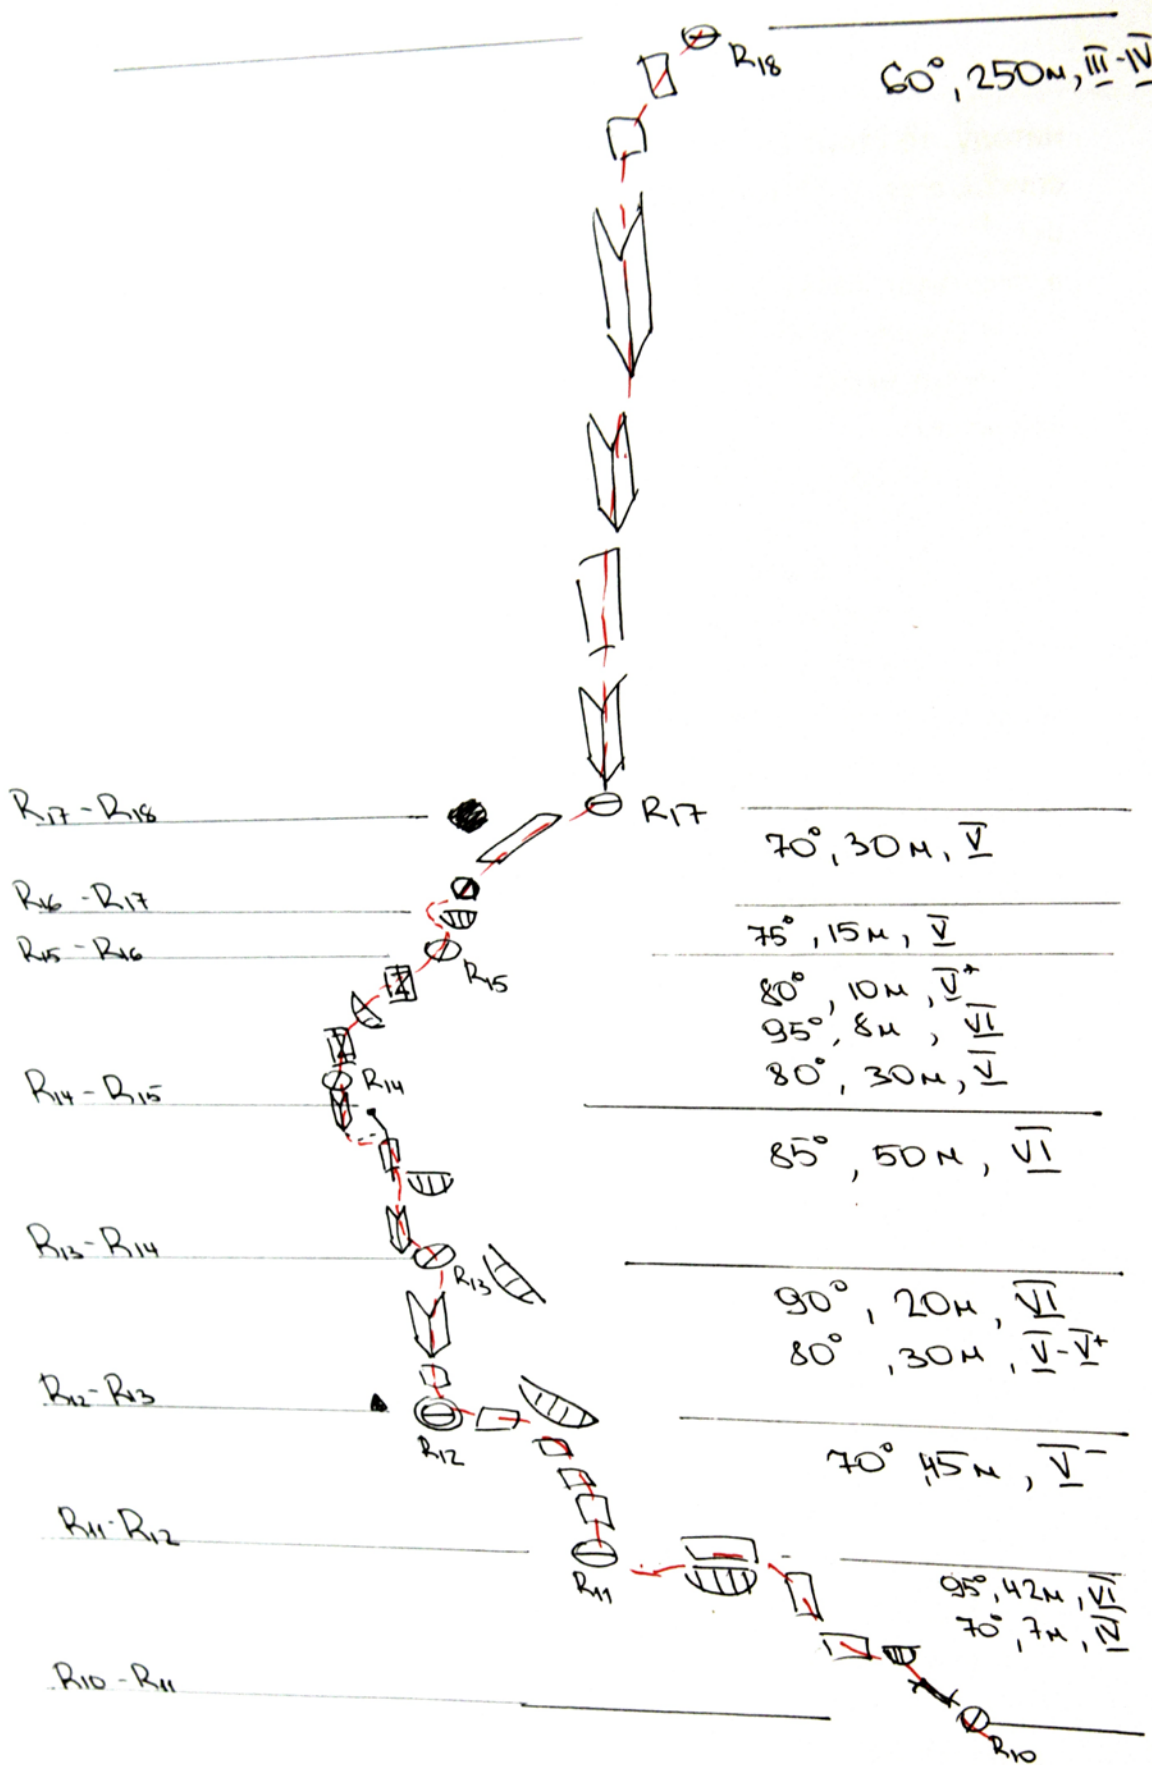 R18
60°, 250м, III-IV
R17-R18
R17
70°, 30м, V
R16-R17
75°, 15м, V
R15-R16
R15
80°, 10м, V+
95°, 8м, VI
80°, 30м, V
R14-R15
R14
85°, 50м, VI
R13-R14
R13
90°, 20м, VI
80°, 30м, V-V+
R12-R13
R12
70° 45м, V-
R11-R12
R11
95°, 42м, VI
70°, 7м, IV
R10-R11
R10